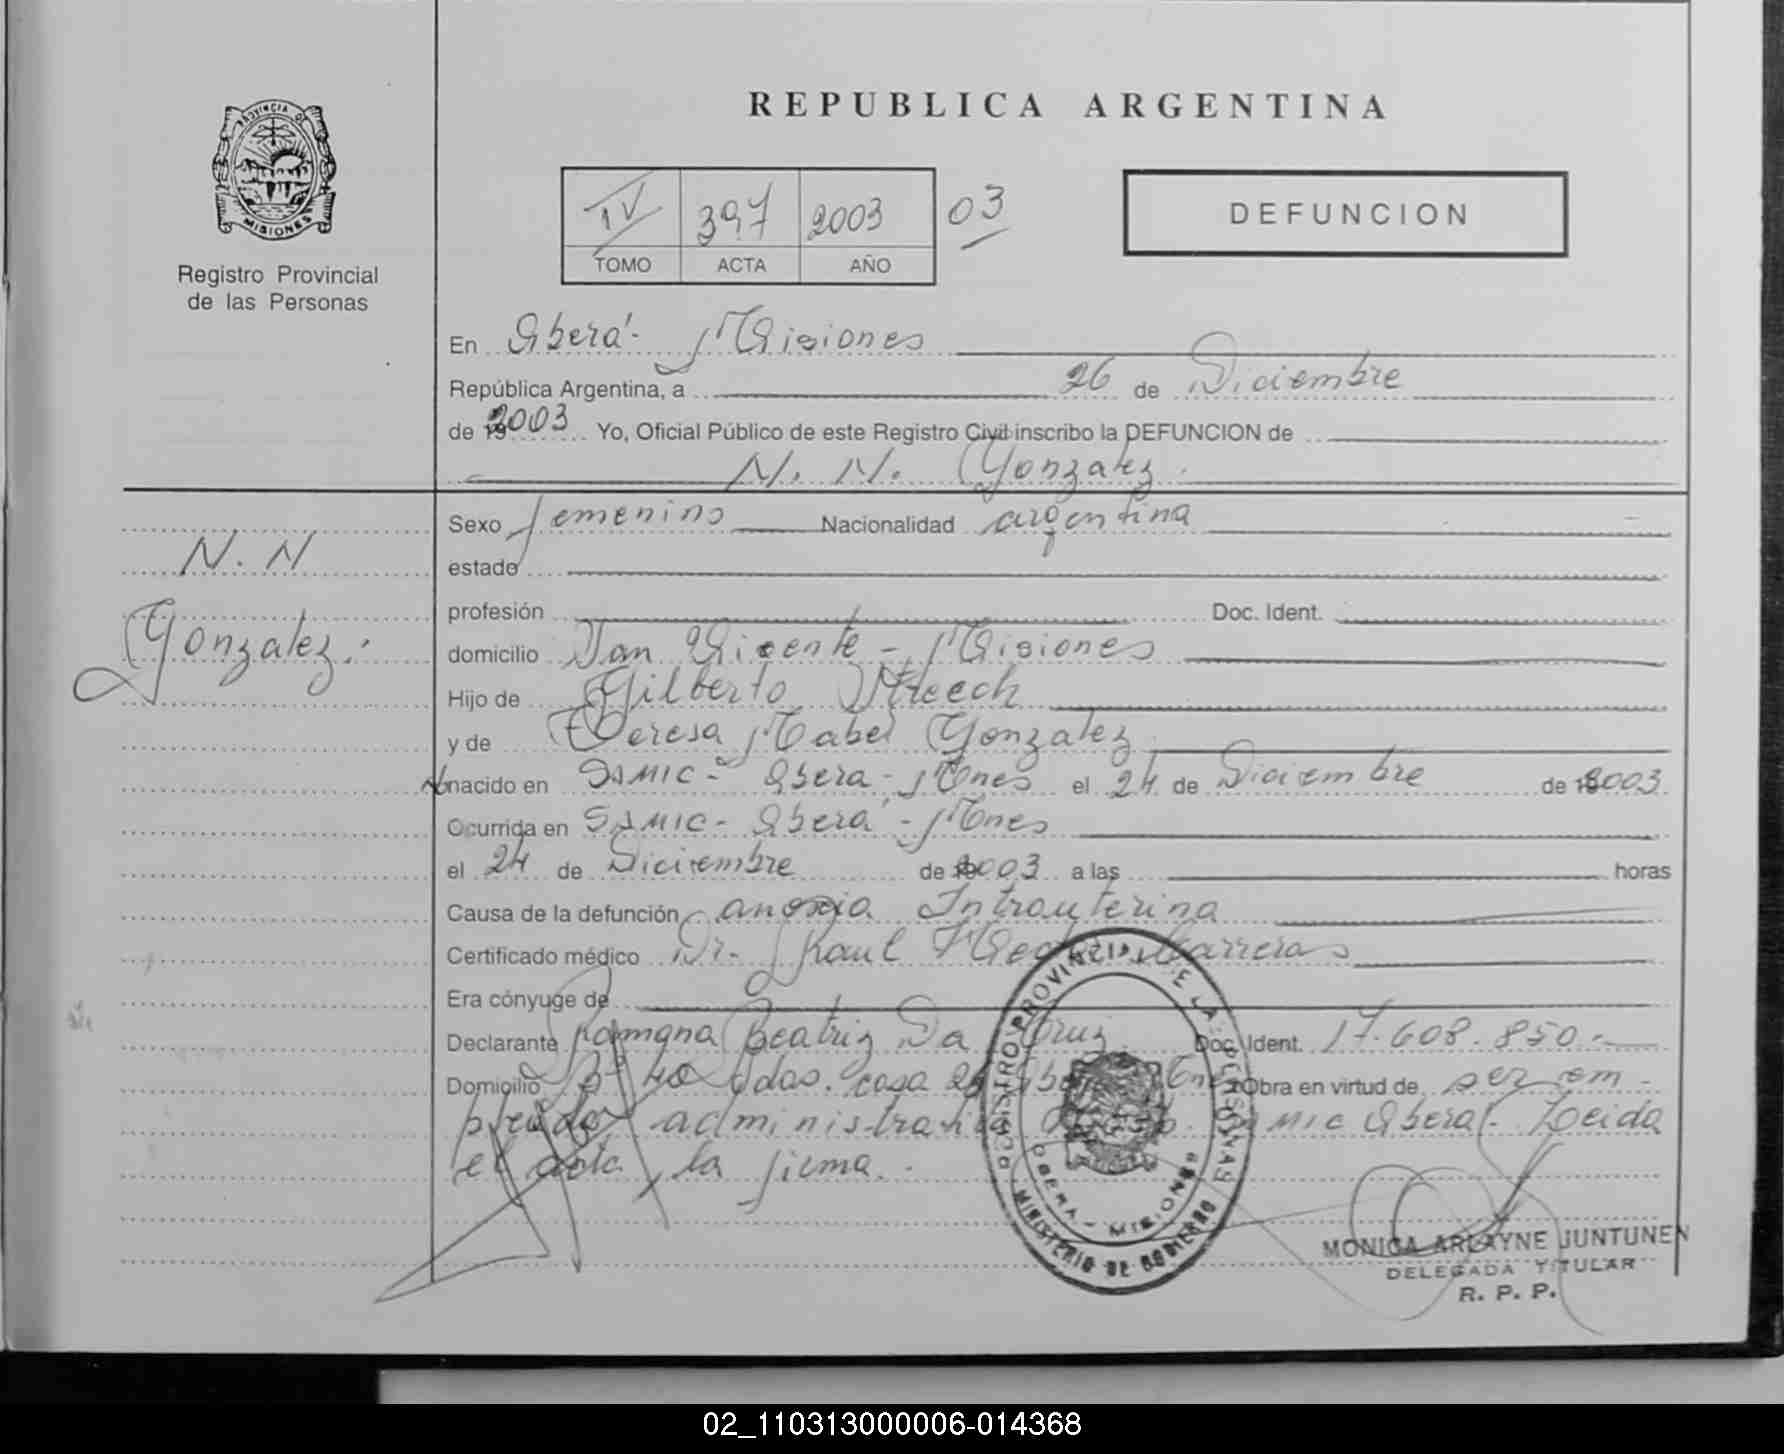 REPUBLICA ARGENTINA
PROVINCIA DE MISIONES
Registro Provincial
de las Personas
IV 397 2003 03
TOMO ACTA AÑO
DEFUNCION
En Oberá - Misiones
República Argentina, a 26 de Diciembre
de 2003 Yo, Oficial Público de este Registro Civil inscribo la DEFUNCION de
N. N. Gonzalez.
N. N
Gonzalez.
Sexo femenino Nacionalidad argentina
estado
profesión Doc. Ident.
domicilio San Vicente - Misiones
Hijo de Gilberto
y de Teresa Mabel Gonzalez
nacido en SAMIC - Oberá - Mnes el 24 de Diciembre de 2003
Ocurrida en SAMIC - Oberá - Mnes
el 24 de Diciembre de 2003 a las horas
Causa de la defunción anoxia Intrauterina
Certificado médico Dr. Raul Carreras
Era cónyuge de
Declarante Ramona Beatriz Da Cruz Doc. Ident. 17.608.850.-
Domicilio Bº 40 casa Obra en virtud de ser em-
pleada administrativa SAMIC Oberá. Leida
el acta, la firma.
REGISTRO PROVINCIAL DE LAS PERSONAS
OBERA - MISIONES
MINISTERIO DE GOBIERNO
MONICA ARLAYNE JUNTUNEN
DELEGADA TITULAR
R. P. P.
02_110313000006-014368